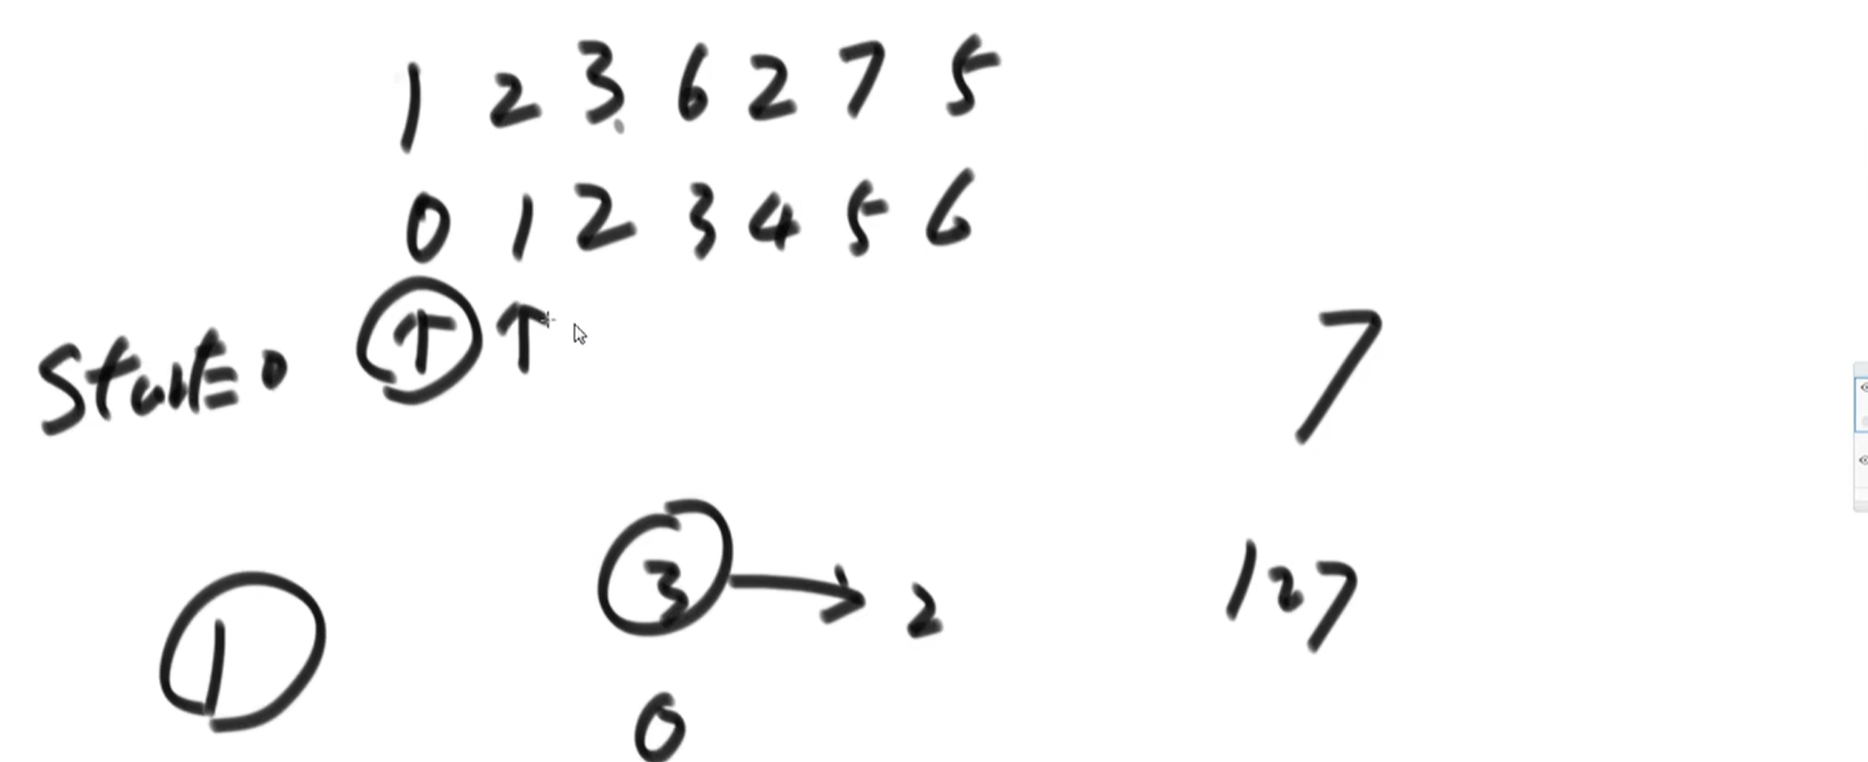 1 2 3 6 2 7 5
0 1 2 3 4 5 6
Start=0 ↑ ↑
7
3 → 2
127
1
0